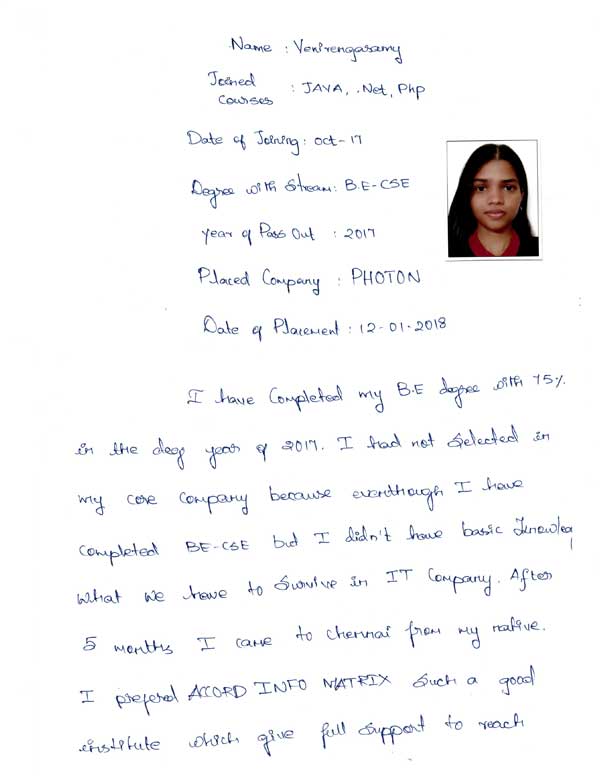 Name : Venirengasamy
Joined
Courses : JAVA, .Net, Php
Date of Joining : oct-17
Degree with Stream : B.E-CSE
Year of Pass Out : 2017
Placed Company : PHOTON
Date of Placement : 12-01-2018
I have Completed my B.E degree with 75%
in the deg year of 2017. I had not Selected in
my core Company because eventhough I have
Completed BE-CSE but I didn't have basic
What we have to Survive in IT Company. After
5 months I came to chennai from my native.
I prefered ACORD INFO MATRIX Such a good
institute which give full Support to reach